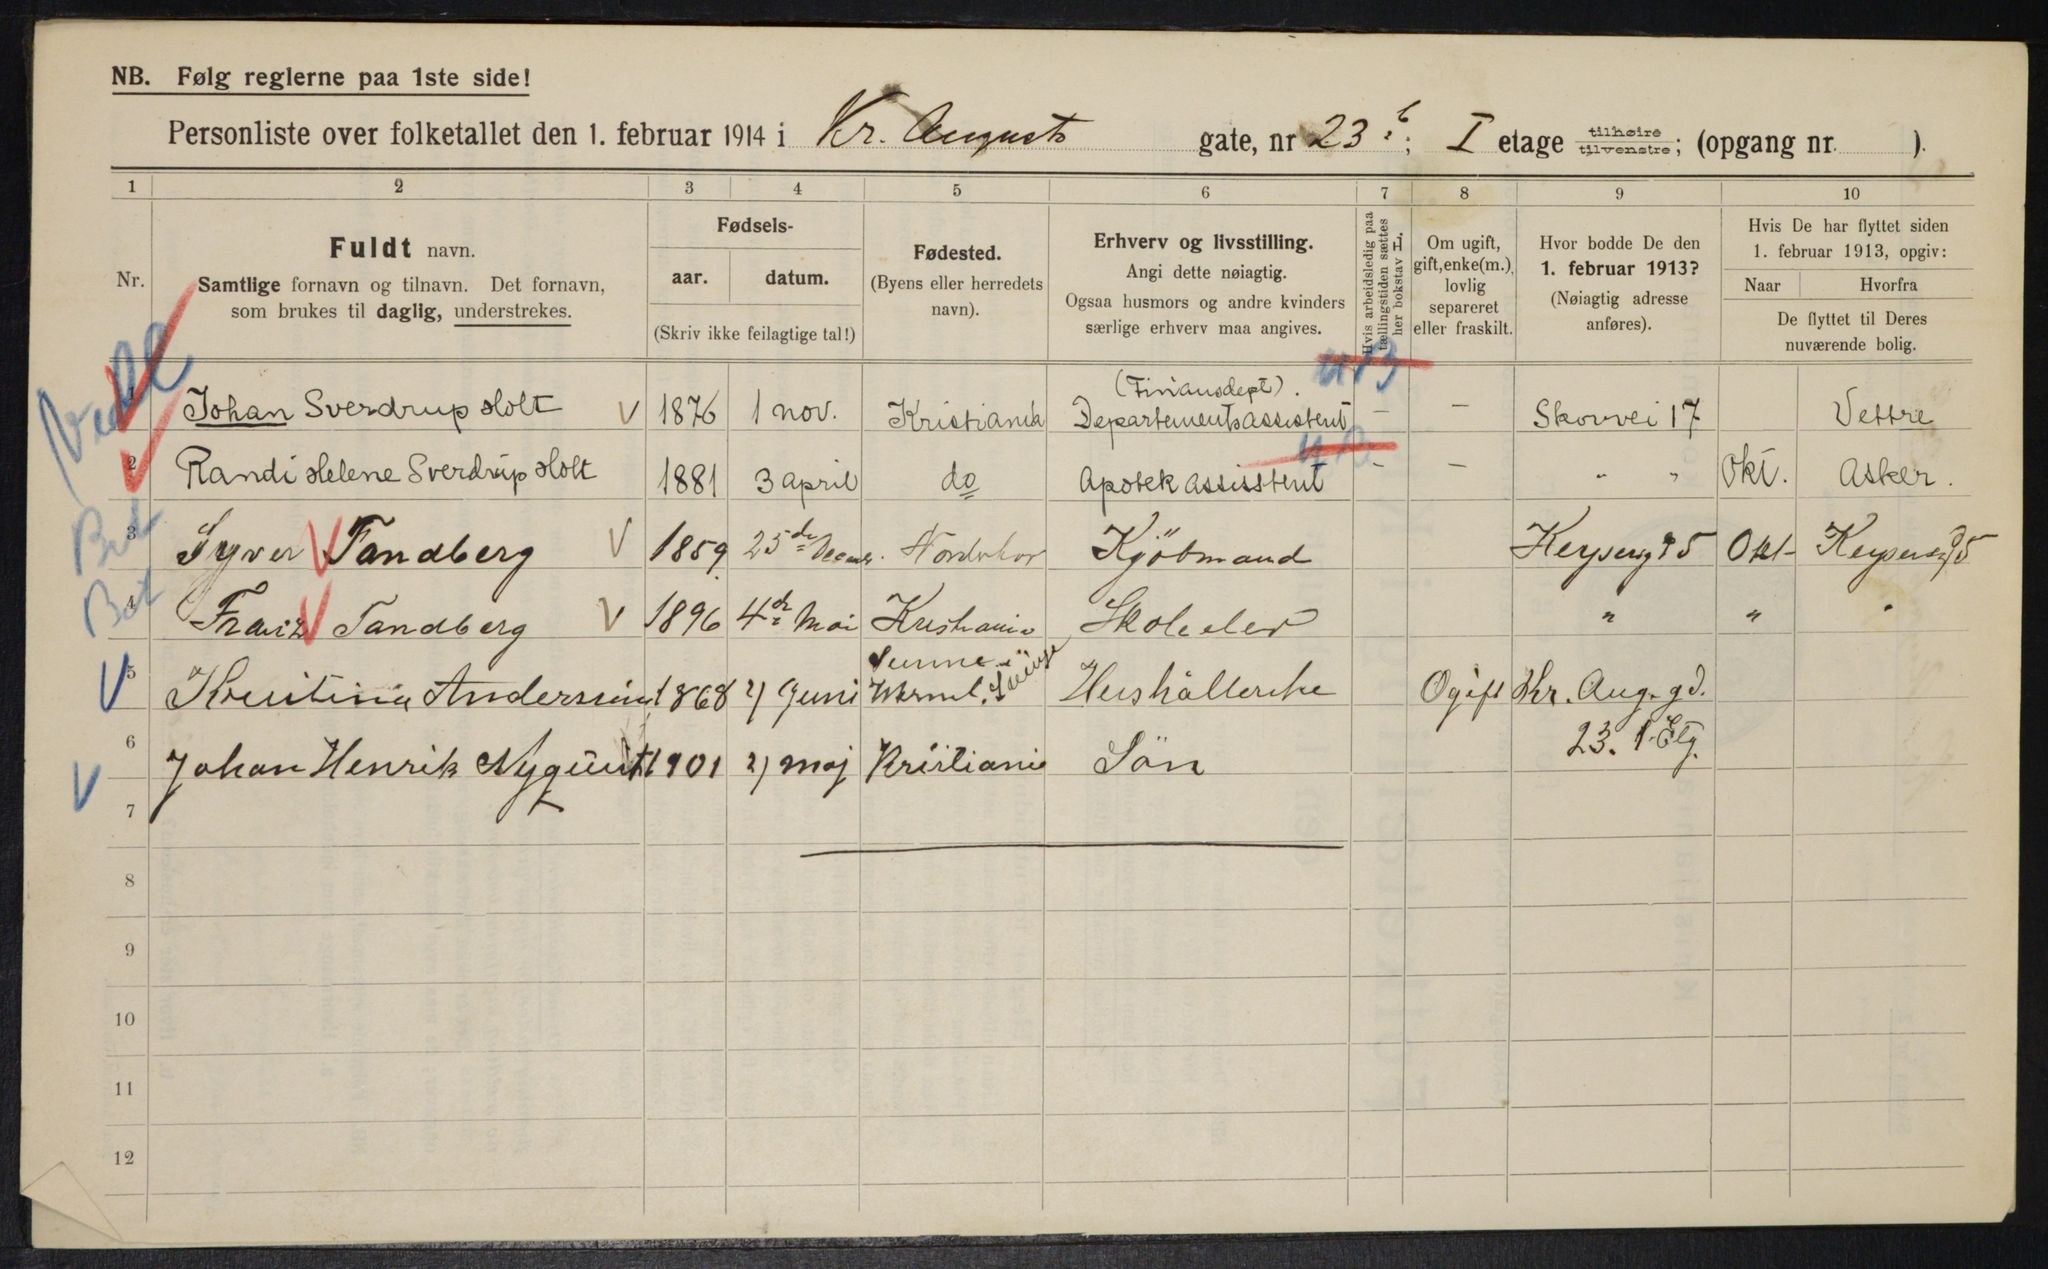 NB. Følg reglerne paa 1ste side!
Personliste over folketallet den 1. februar 1914 i Kr. Augusts gate, nr 23 b; I etage tilhøire tilvenstre; (opgang nr. ).
1 2 3 4 5 6 7 8 9 10
Nr.
Fuldt navn.
Samtlige fornavn og tilnavn. Det fornavn,
som brukes til daglig, understrekes.
Fødsels-
aar. datum.
(Skriv ikke feilagtige tal!)
Fødested.
(Byens eller herredets
navn).
Erhverv og livsstilling.
Angi dette nøiagtig.
Ogsaa husmors og andre kvinders
særlige erhverv maa angives.
Hvis arbeidsledig paa
tællingstiden sættes
her bokstav L.
Om ugift,
gift, enke(m.),
lovlig
separeret
eller fraskilt.
Hvor bodde De den
1. februar 1913?
(Nøiagtig adresse
anføres).
Hvis De har flyttet siden
1. februar 1913, opgiv:
Naar Hvorfra
De flyttet til Deres
nuværende bolig.
(Finansdept).
1 Johan Sverdrup Holt V 1876 1 nov. Kristiania Departementsassistent – – Skovvei 17 Vettre
2 Randi Helene Sverdrup Holt 1881 3 april do Apotekassisstent – – " " Okt. Asker.
3 Syver Tandberg V 1859 25de Nordrhov Kjøbmand Keysersg 5 Okt Keysersg 5
4 Franz Tandberg V 1896 4de Mai Kristiania Skoleelev " " "
Sunne
5 Kristina Andersson 1868 2/ Juni Werml. Hushållerske Ogift Kr. Aug. gd.
23. 1. Etg.
6 Johan Henrik Nyquist 1901 2/ maj Kristiania Sön
7
8
9
10
11
12